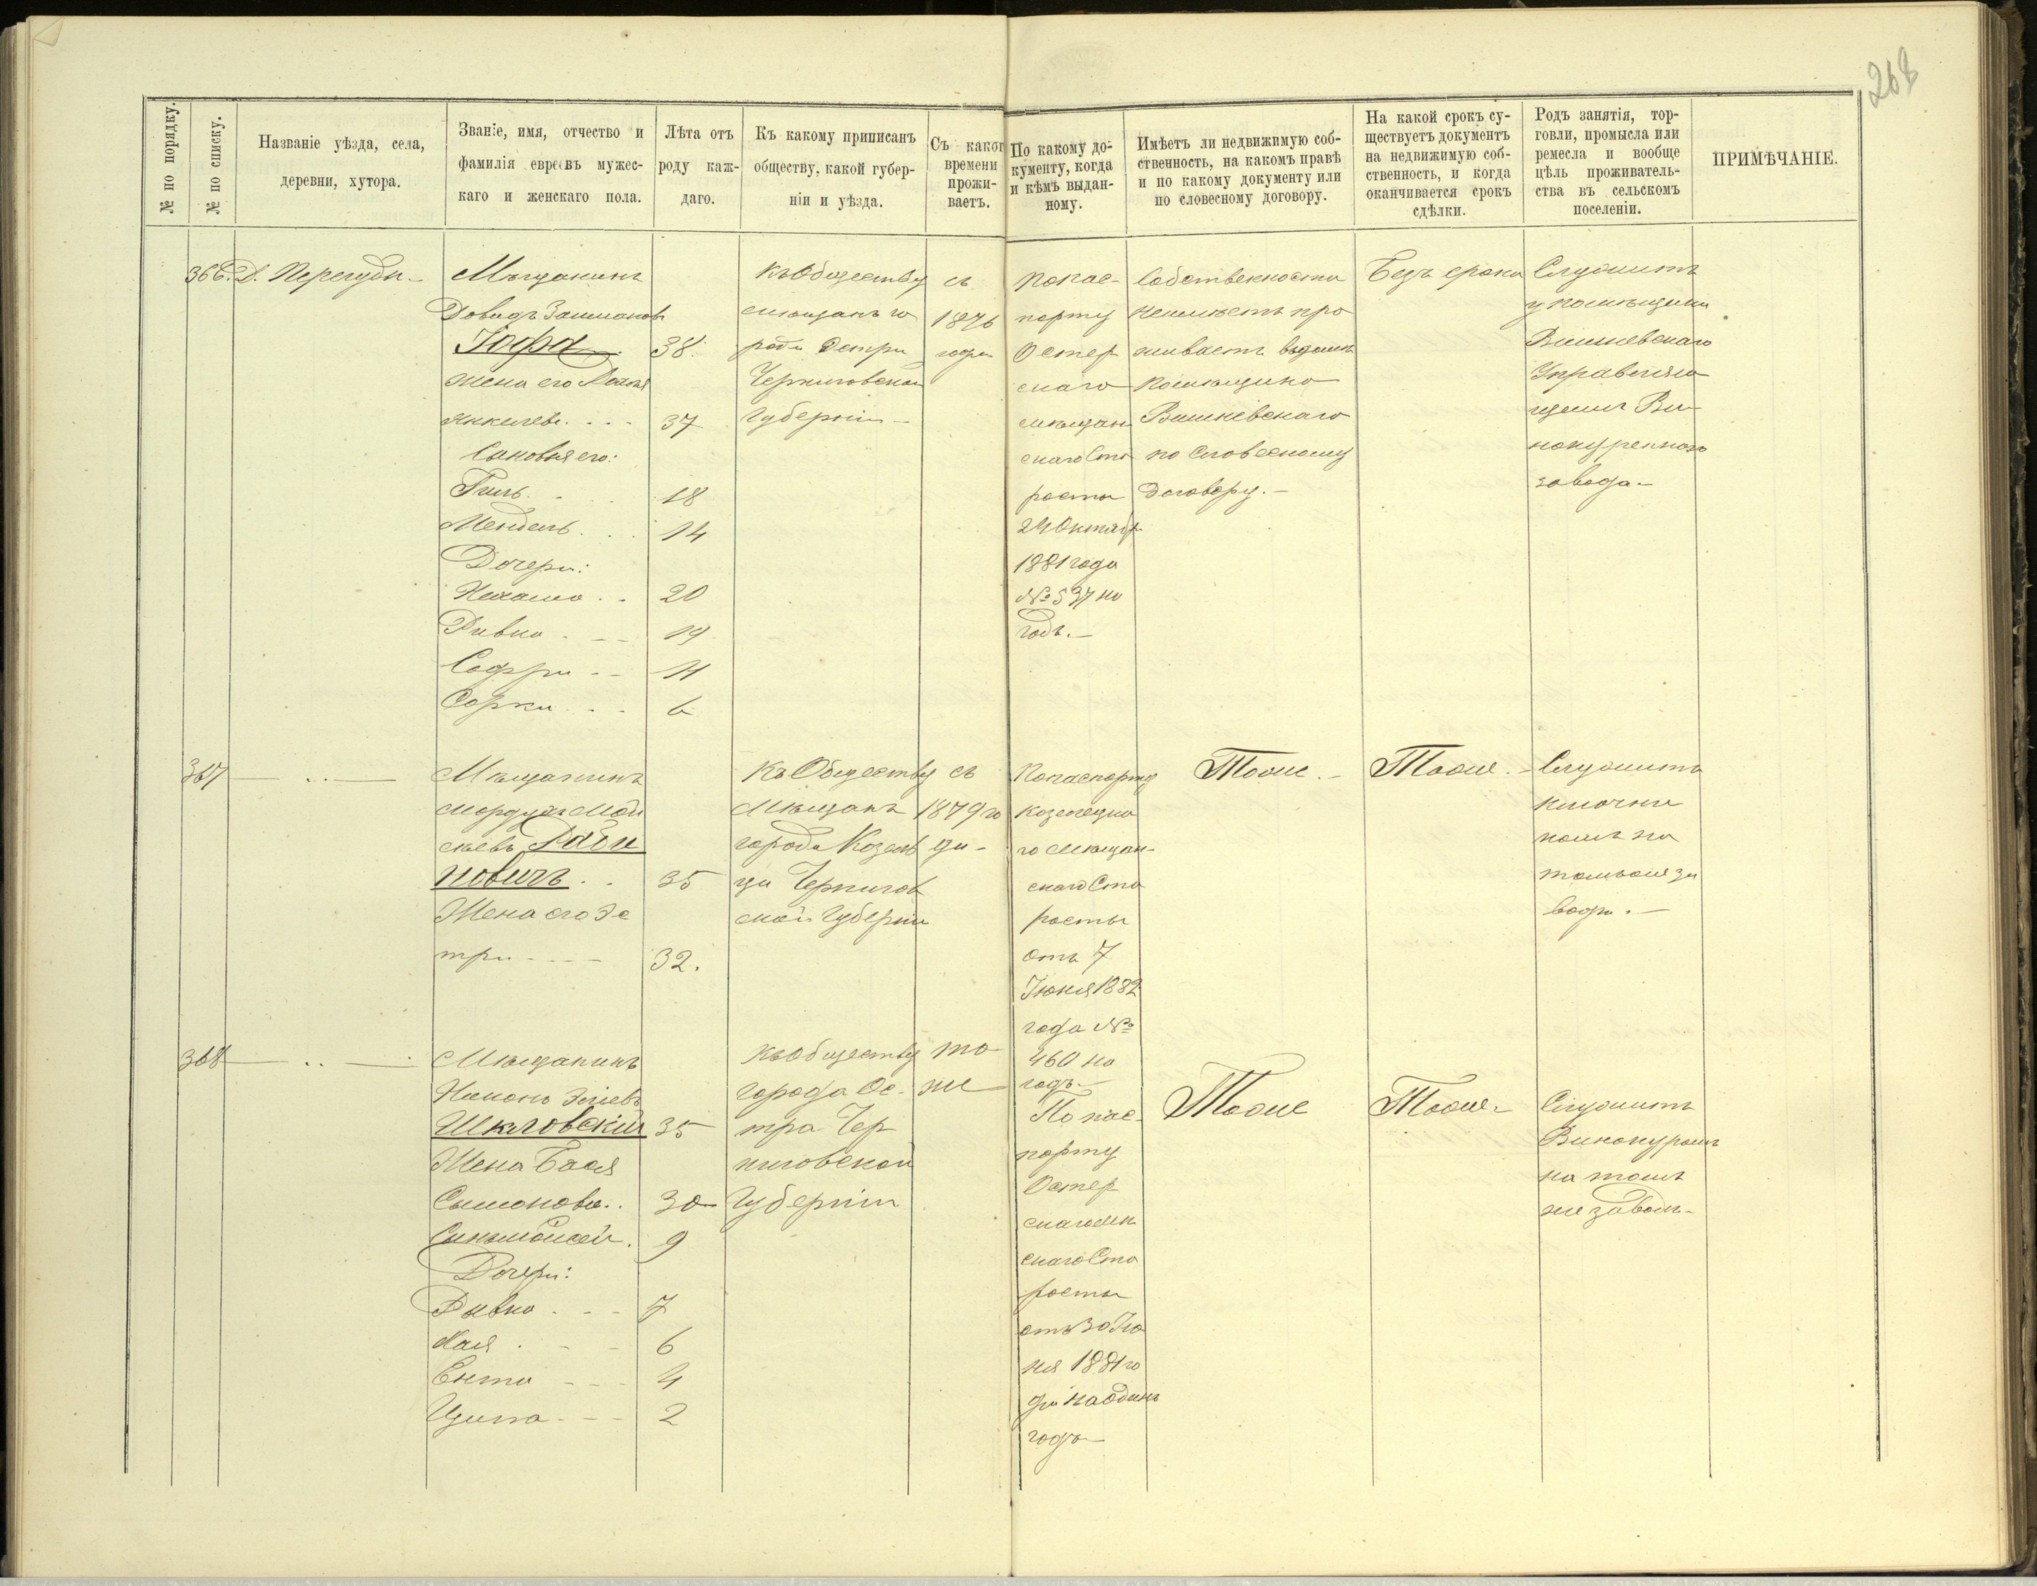 268
№ по порядку.
№ по списку.
Названіе уѣзда, села,
деревни, хутора.
Званіе, имя, отчество и
фамилія евреевъ мужес-
каго и женскаго пола.
Лѣта отъ
роду каж-
даго.
Къ какому приписанъ
обществу, какой губер-
ніи и уѣзда.
Съ каког
времени
прожи-
ваетъ.
По какому до-
кументу, когда
и кѣмъ выдан-
ному.
Имѣетъ ли недвижимую соб-
ственность, на какомъ правѣ
и по какому документу или
по словесному договору.
На какой срокъ су-
ществуетъ документъ
на недвижимую соб-
ственность, и когда
оканчивается срокъ
сдѣлки.
Родъ занятія, тор-
говли, промысла или
ремесла и вообще
цѣль проживатель-
ства въ сельскомъ
поселеніи.
ПРИМѢЧАНІЕ.
366. Д.
Мѣщанинъ
Довидъ
Іофа 38.
жена его
Янкелева 37
Сыновья его:
18
Мендель 14
Дочери:
Нехама 20
Ривка 19
11
Сорка 6
Къ Обществу
мѣщанъ го
рода Остра
Черниговской
Губерніи
съ
1876
года
По пас-
порту
Остер
скаго
мѣщан
скаго Ста
росты
24 Октяб
1881 года
№ 537 на
годъ.
Собственности
неимѣетъ про
живаетъ въ домѣ
помѣщика
Вишневскаго
по Словесному
договору.
Безъ срока
Служитъ
у помѣщика
Вишневскаго
Управляю
щимъ Ви-
нокуреннаго
завода
367
Мѣщанинъ
Мордухъ Мой
сѣевъ Раби
новичъ 35
Жена его Эс
тра 32.
Къ Обществу
Мѣщанъ
города Козель
ца Чернигов
ской Губерніи
съ
1879 го
да
По паспорту
Козелецка
го Мѣщан-
скаго Ста
росты
отъ 7
Іюня 1882
года №
460 на
годъ.
Тоже.
Тоже.
Служитъ
ключни
комъ на
томъ же за
водѣ.
368
Мѣщанинъ
Шкловскій 35
Жена Бася
Симонова 30
Сынъ Мойсей 9
Дочери:
Ривка 7
Хая 6
Ента 4
Ципа 2
Къ Обществу
города Ос-
тра Чер
ниговской
Губерніи
то
же
По пас-
порту
Остер
скаго Ста
росты
отъ 30 Ію
ня 1881 го
да на одинъ
годъ
Тоже
Тоже
Служитъ
Винокуромъ
на томъ
же заводѣ